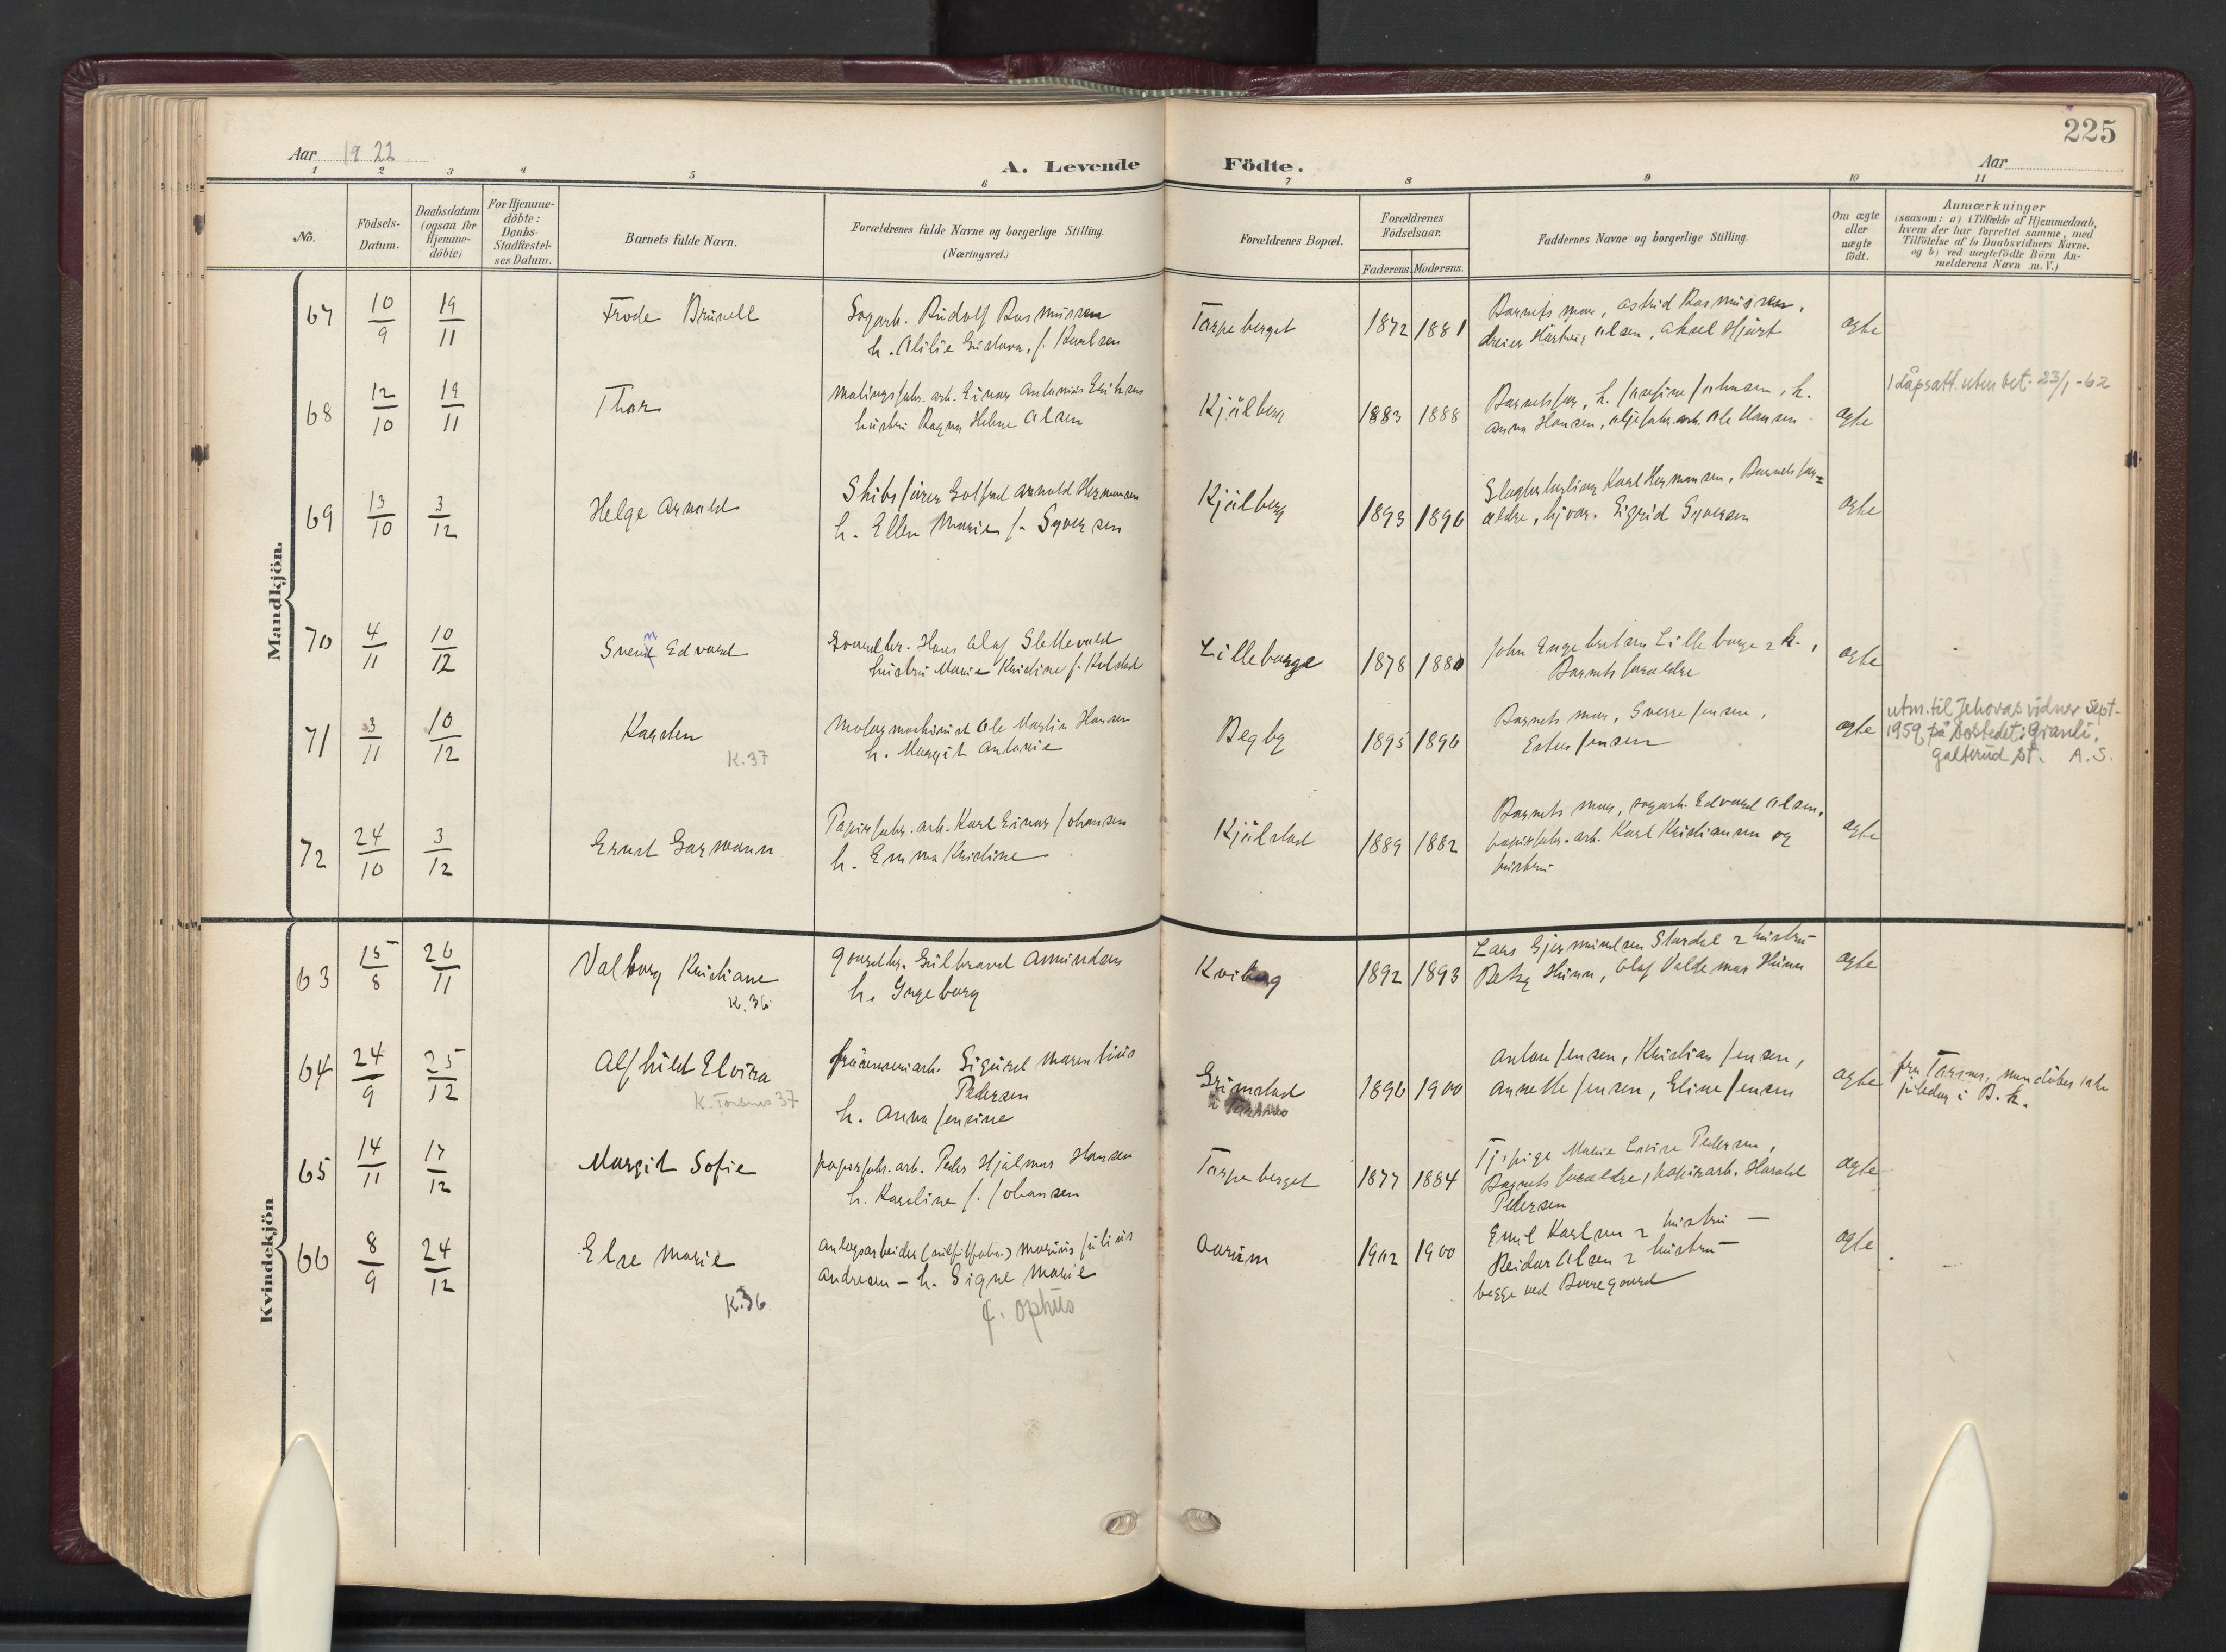 225
Aar 1922
A. Levende Födte.
Aar
1 2 3 4 5 6 7 8 9 10 11
No.
Födsels-Datum.
Daabsdatum (ogsaa for Hjemme-döbte)
For Hjemme-döbte: Daabs-Stadfæstel-ses Datum.
Barnets fulde Navn.
Forældrenes fulde Navne og borgerlige Stilling.
(Næringsvei.)
Forældrenes Bopæl.
Forældrenes Födselsaar.
Faderens. Moderens.
Faddernes Navne og borgerlige Stilling.
Om ægte eller uægte födt.
Anmærkninger
(saasom: a) i Tilfælde af Hjemmedaab,
hvem der har forrettet samme, med
Tilföielse af to Daabsvidners Navne.
og b) ved uægtefödte Börn An-
melderens Navn m. V.)
Mandkjön.
67 10/9 19/11 Frode Brünell
Sagarb. Rudolf Rasmussen
Tarpeberget 1872 1881
Barnets mor, Astrid Rasmussen,
Olsen, Aksel Hjort
ægte
68 12/10 19/11 Thor
arb. Einar Antonius
hustru Ragna Helene Olsen
Kjölberg 1883 1888
Barnets far, h. Josefine Johnsen, h.
Anna Hansen, arb. Ole Hansen
ægte
1 dåpsatt. uten bet. 23/1-62
69 13/10 3/12 Helge Arnold
Skibsförer Arnold Hermansen
h. Ellen Marie f. Syversen
Kjölberg 1893 1896
Karl Hermansen, Barnets for=
ældre, Sigrid Syversen
ægte
70 4/11 10/12 Svend Edvard
n
Gaardbr. Hans Olaf Slettevold
hustru Marie Kristine f. Kulstad
Lilleborge 1878 1880
John Engebretsen Lilleborge & h.,
Barnets forældre
ægte
71 3/11 10/12 Karsten
K. 37
Motormaskinist Ole Martin Hansen
h. Margit Antonie
Begby 1895 1896
Barnets mor, Sverre Jensen,
Ester Jensen
ægte
utm. til Jehovas vidner sept.
1959 på bostedet: Granli,
Galterud st. A.S.
72 24/10 3/12 Ernst Garmann
Papirfabr. arb. Karl Einar Johansen
h. Emma Kristine
Kjölstad 1889 1882
Barnets mor, sagarb. Edvard Olsen,
papirfabr. arb. Karl Kristiansen og
hustru
ægte
Kvindekjön
63 15/8 26/11 Valborg Kristiane
K. 36
Gaardbr. Gulbrand Amundsen
h. Ingeborg
Kviberg 1892 1893
Lars & hustru
Betzy Hunn, Olaf Valdemar Hunn
ægte
64 24/9 25/12 Alfhild Elvira
K. Torsnes 37
Sigurd Marentius
Pedersen
h. Anna Jensine
Grimstad
1896 1900
Anton Jensen, Kristian Jensen,
Annette Jensen, Eline Jensen
ægte
fra Torsnes, men döbes 1ste
juledag i B. k.
65 14/11 17/12 Margit Sofie
papirfabr. arb. Peder Hjalmar Hansen
h. Karoline f. Johansen
Tarpeberget 1877 1884
Tj.pige Marie Lovise Pedersen,
Barnets forældre, papirarb. Harald
Pedersen
ægte
66 8/9 24/12 Else Marie
K. 36
Anlægsarbeider Marius Julius
Andresen - h. Signe Marie
f. Ophus
Aarum 1902 1900
Emil Karlsen & hustru -
Reidar Olsen & hustru -
begge ved Borregaard
ægte